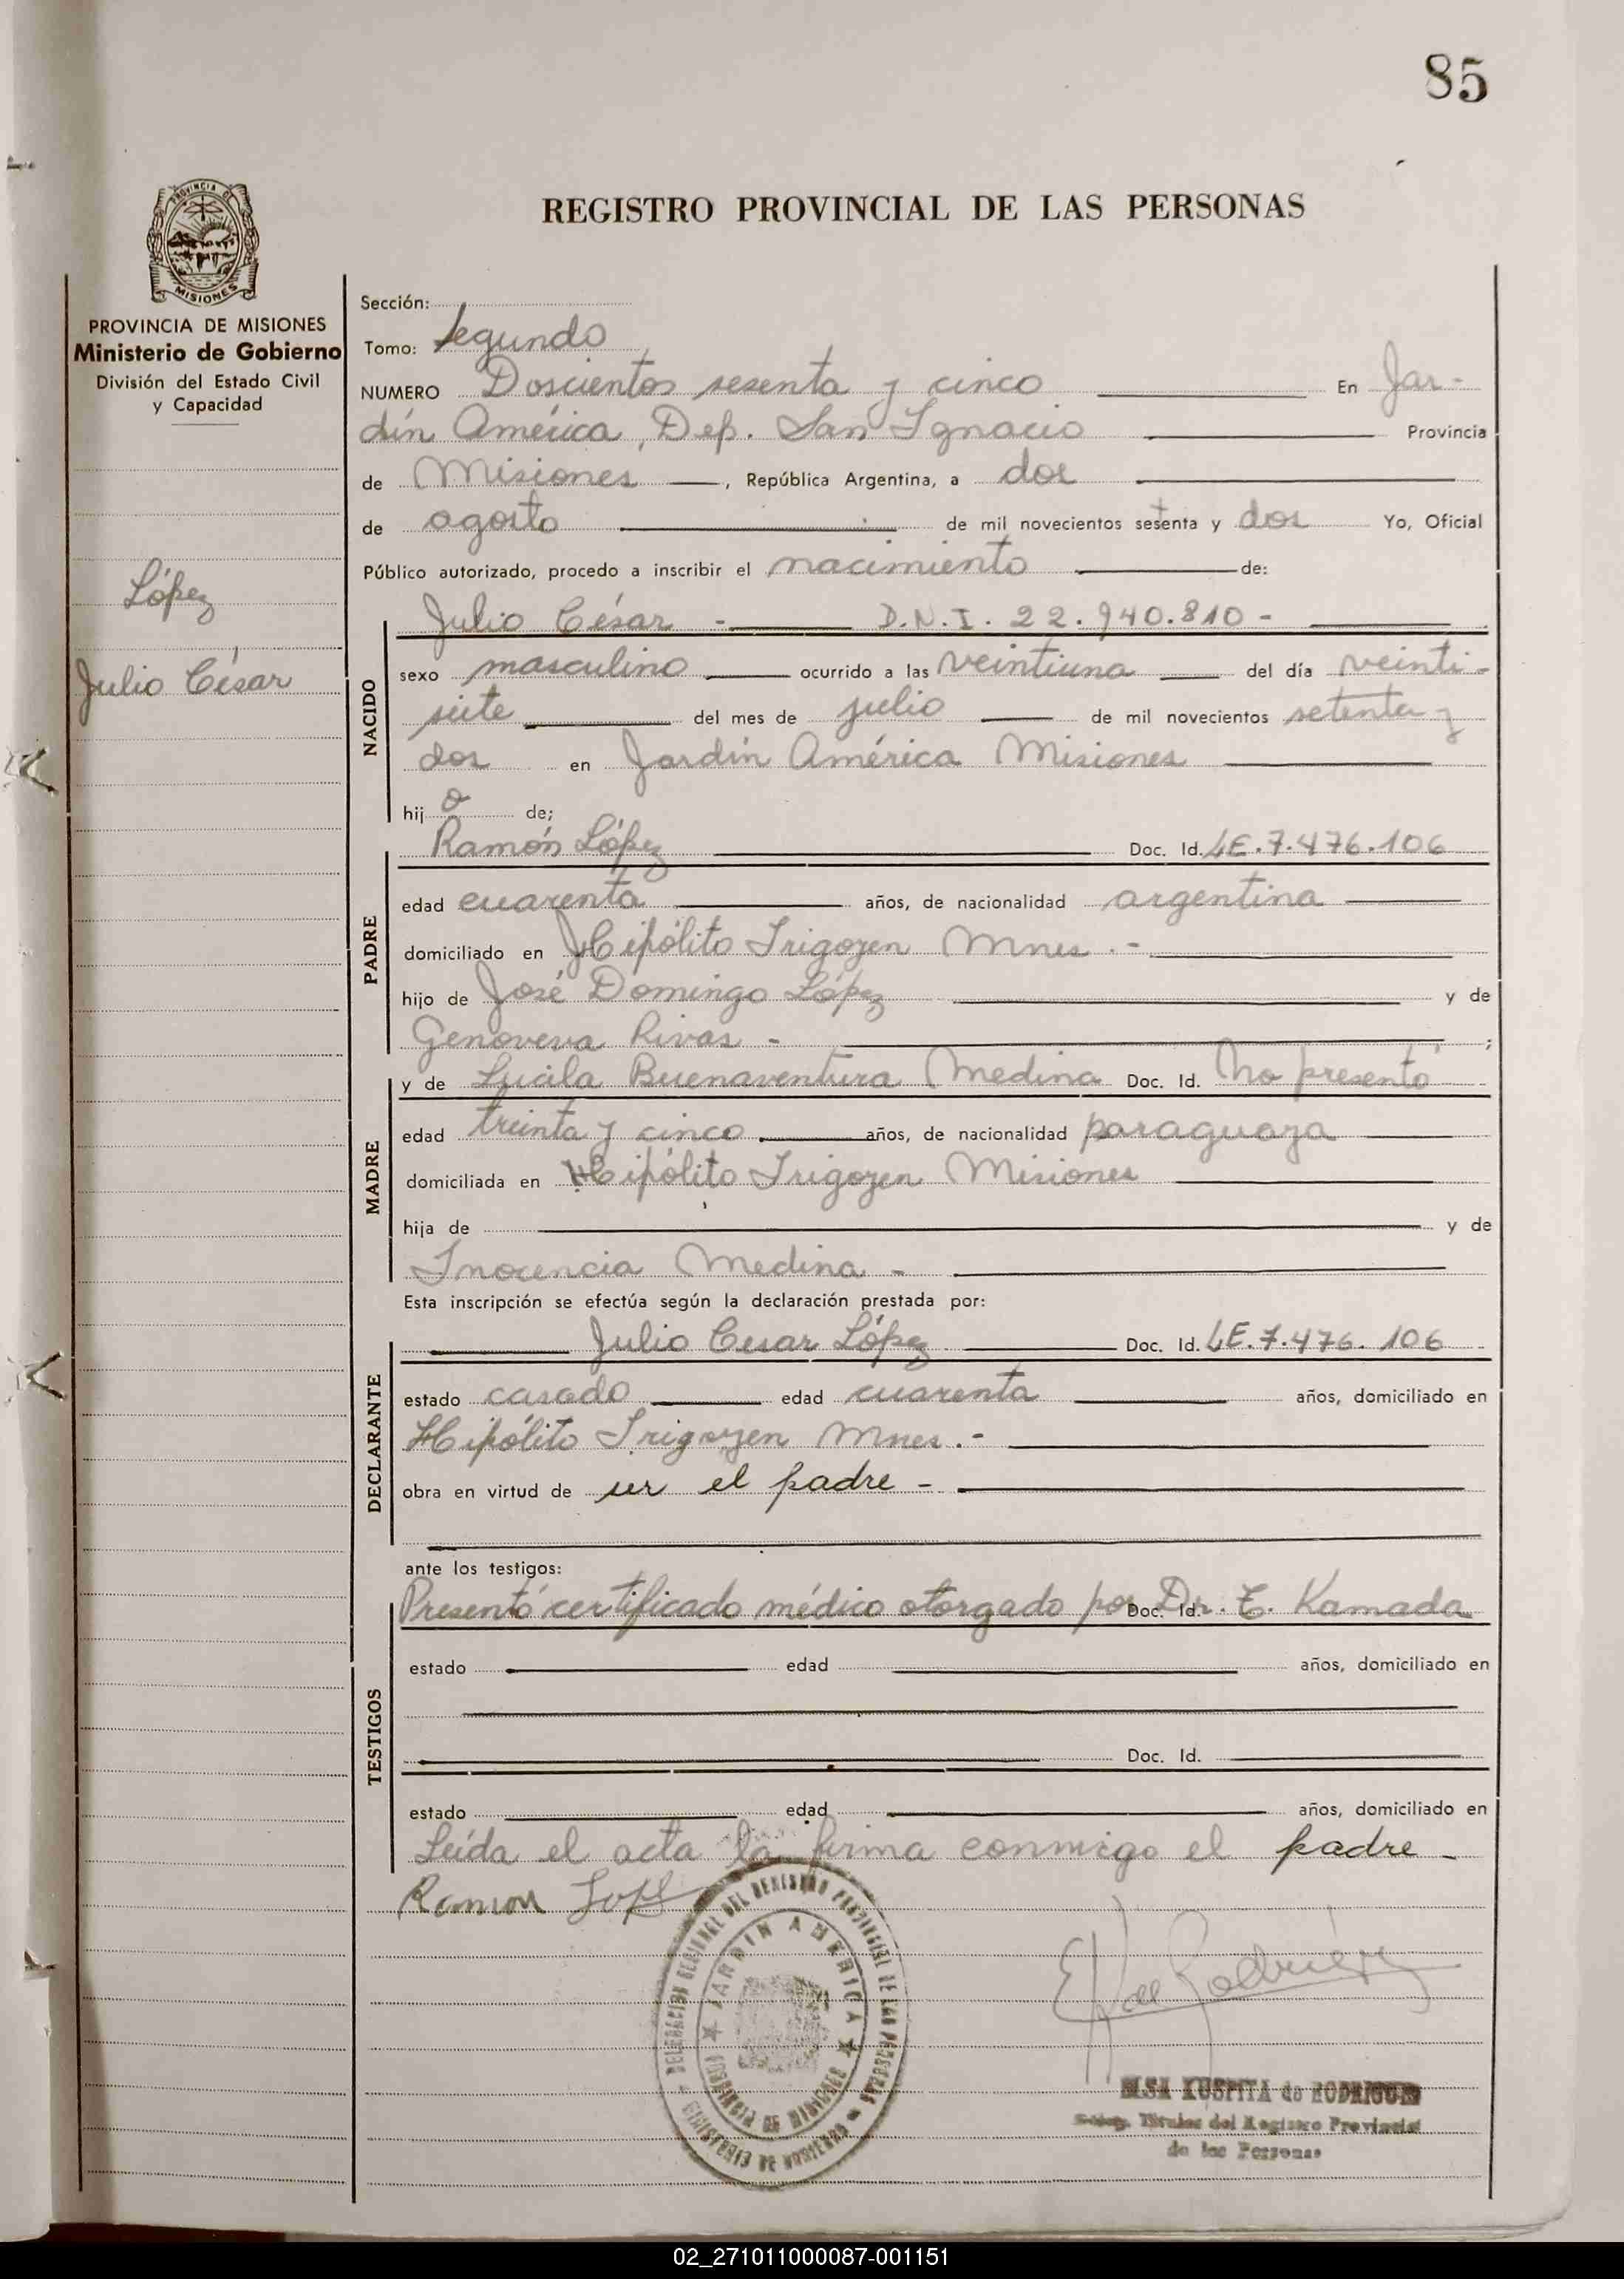 85
PROVINCIA DE
MISIONES
REGISTRO PROVINCIAL DE LAS PERSONAS
PROVINCIA DE MISIONES
Ministerio de Gobierno
División del Estado Civil
y Capacidad
López
Julio César
Sección:
Tomo: Segundo
NUMERO Doscientos sesenta y cinco En Jar-
dín América, Dep. San Ignacio Provincia
de Misiones, República Argentina, a dos
de agosto de mil novecientos setenta y dos Yo, Oficial
Público autorizado, procedo a inscribir el nacimiento de:
NACIDO
Julio César - D.N.I. 22.940.810 -
sexo masculino ocurrido a las veintiuna del día veinti-
siete del mes de julio de mil novecientos setenta y
dos en Jardín América Misiones
hij o de;
PADRE
Ramón López Doc. Id. LE.7.476.106
edad cuarenta años, de nacionalidad argentina
domiciliado en Hipólito Irigoyen Mnes. -
hijo de José Domingo López y de
Genoveva Rivas - ;
MADRE
y de Lucila Buenaventura Medina Doc. Id. No presentó
edad treinta y cinco años, de nacionalidad paraguaya
domiciliada en Hipólito Irigoyen Misiones
hija de y de
Inocencia Medina -
Esta inscripción se efectúa según la declaración prestada por:
DECLARANTE
Julio Cesar López Doc. Id. LE.7.476.106
estado casado edad cuarenta años, domiciliado en
Hipólito Irigoyen Mnes. -
obra en virtud de ser el padre -
ante los testigos:
TESTIGOS
Presentó certificado médico otorgado por Doc. Id. Dr. T. Kamada
estado edad años, domiciliado en
Doc. Id.
estado edad años, domiciliado en
Leída el acta la firma conmigo el padre -
Ramon Lopez
JARDIN AMERICA
ELSA KUSPITA de RODRIGUEZ
Titular del Registro Provincial
de las Personas
02_271011000087-001151